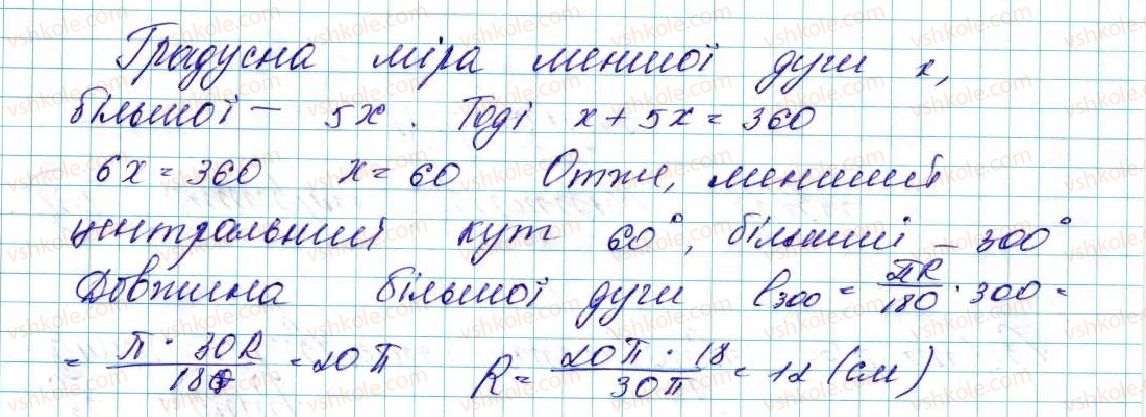 Градусна міра меншої дуги x,
більшої – 5x. Тоді x + 5x = 360
6x = 360 x = 60 Отже, менший
центральний кут 60°, більший – 300°
Довжина більшої дуги l₃₀₀ = πR/180 · 300 =
= π · 30R/18 = 20π R = 20π · 18/30π = 12 (см)